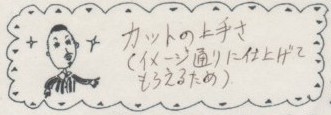 カットの上手さ
(イメージ通りに仕上げて
もらえるため)